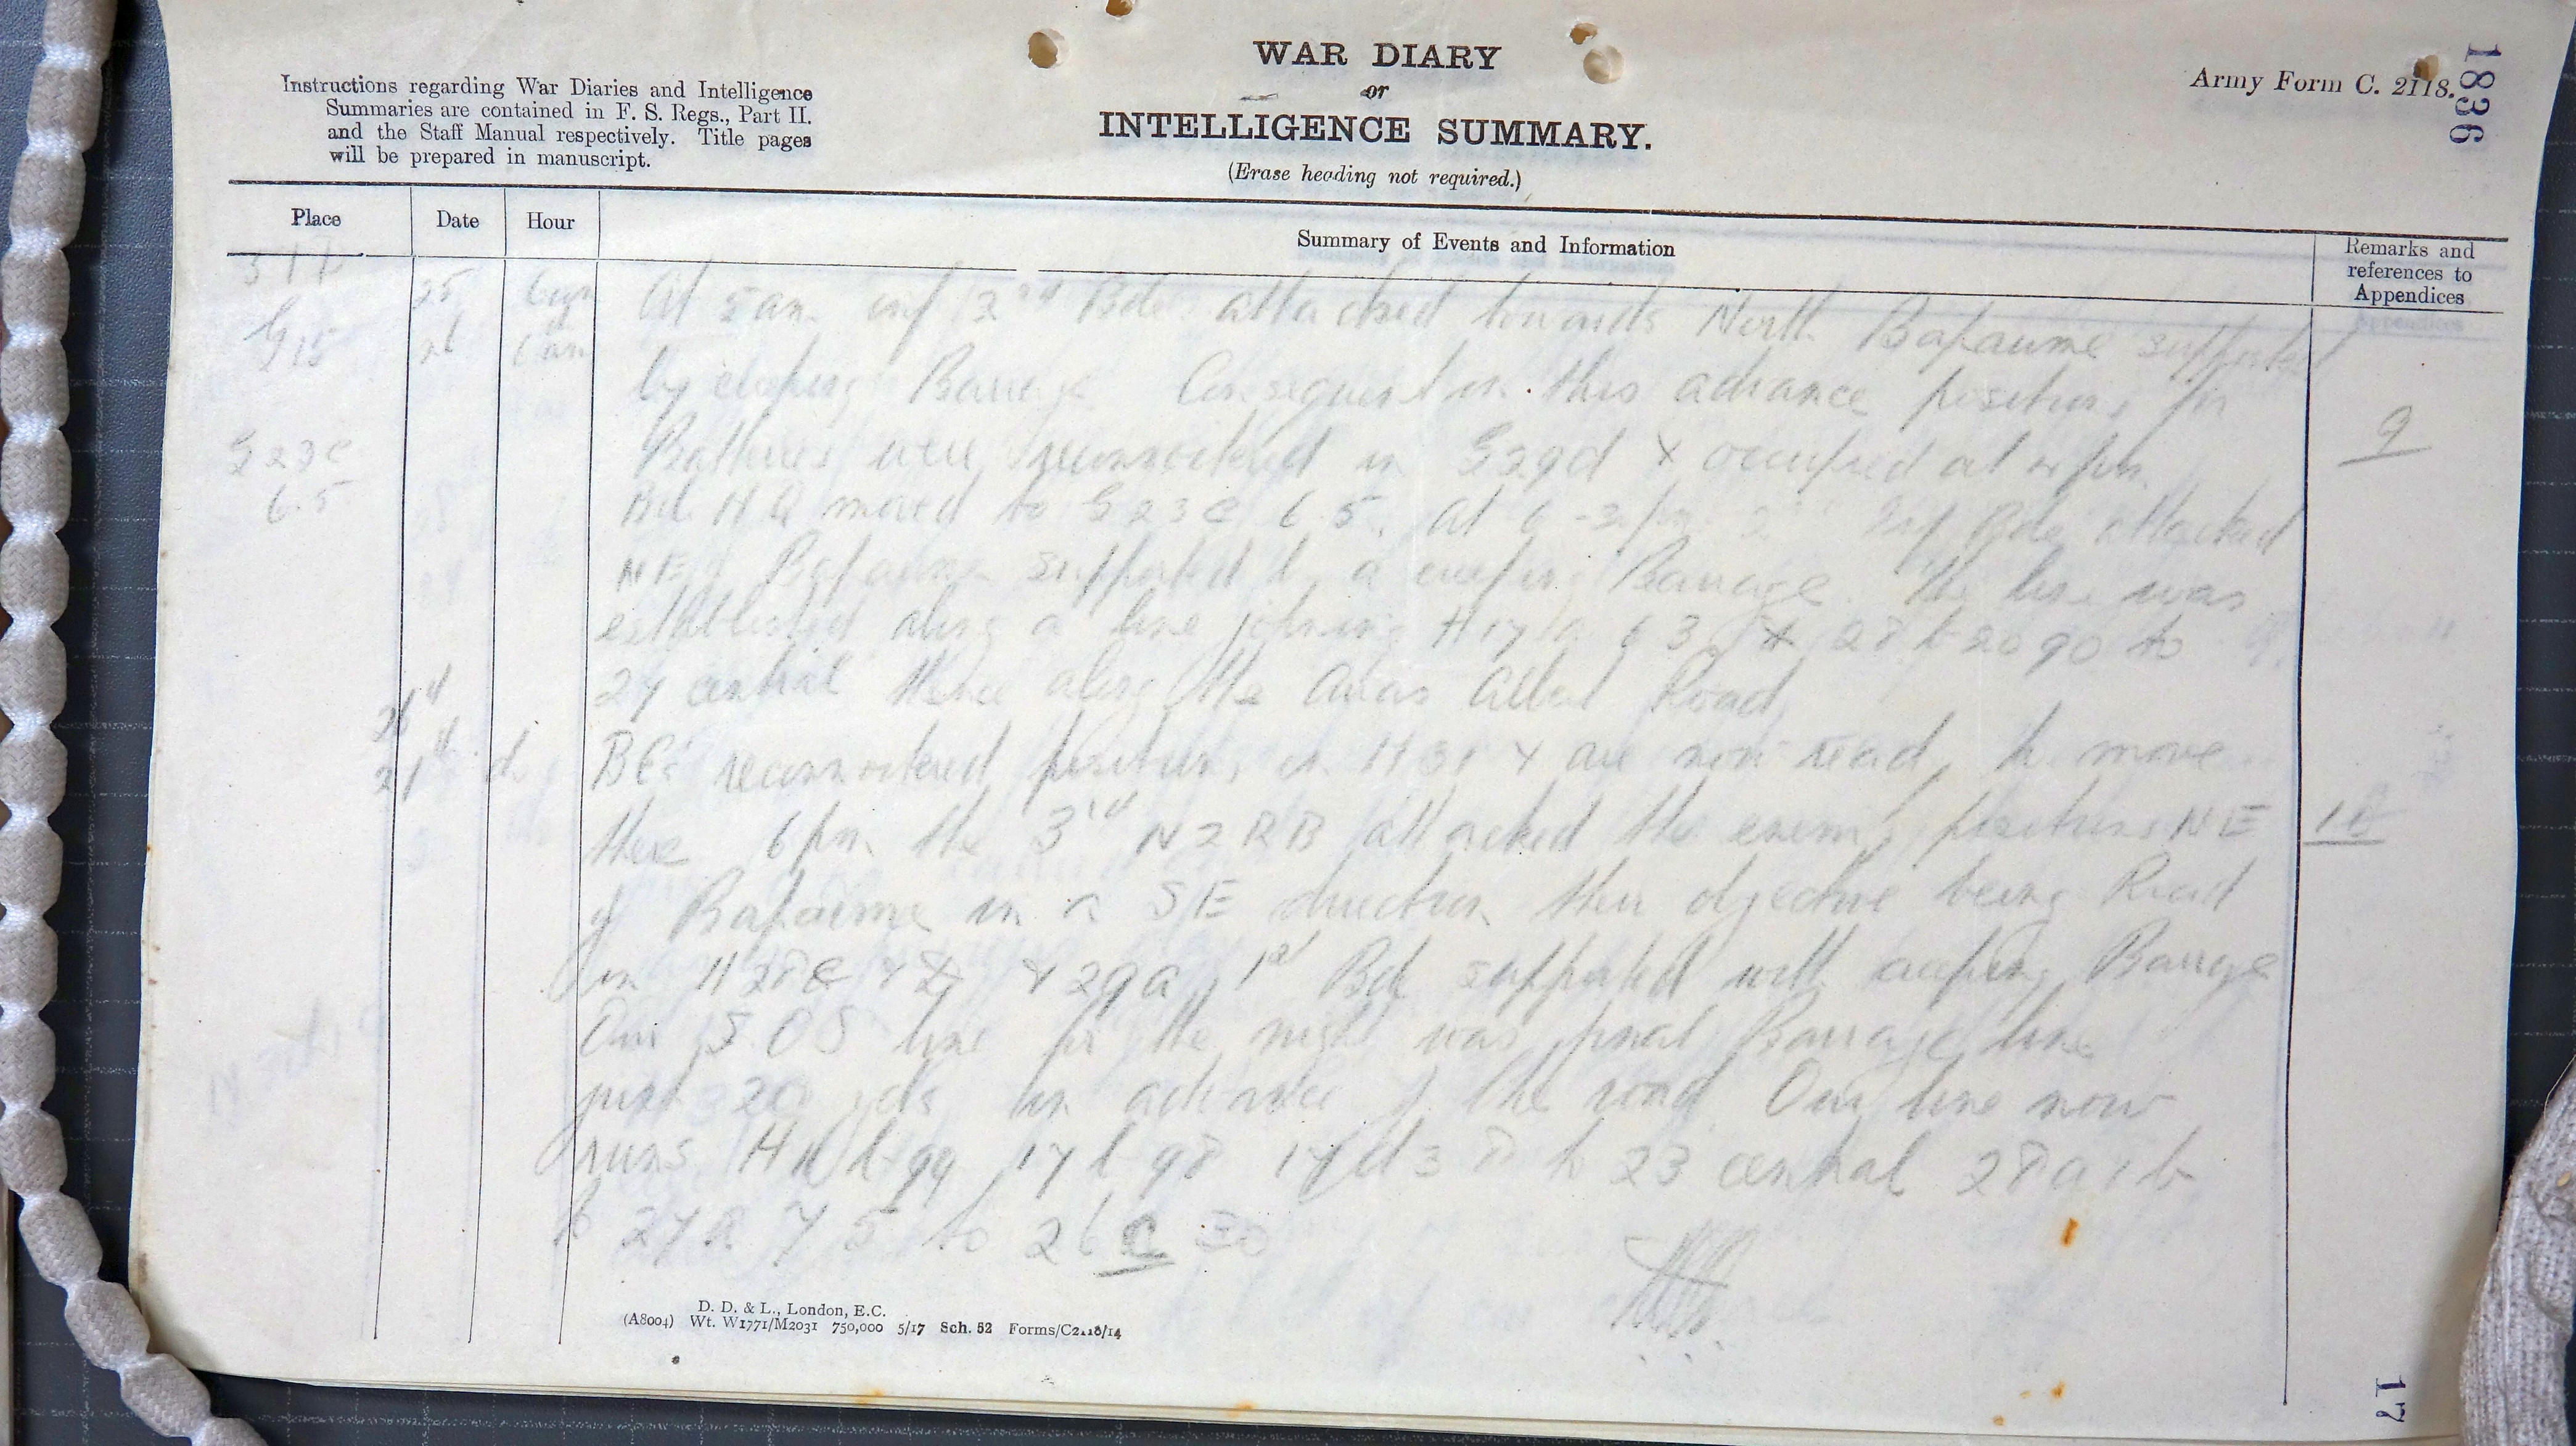 WAR DIARY
or
INTELLIGENCE SUMMARY.
(Erase heading not required.)
Instructions regarding War Diaries and Intelligence
Summaries are contained in F. S. Regs., Part II.
and the Staff Manual respectively. Title pages
will be prepared in manuscript.
Army Form C. 2118.
1836
Place Date Hour Summary of Events and Information Remarks and references to Appendices
G15 25 26 6am
At 5 am inf 2nd Bde attacked towards North Bapaume supported
by creeping Barrage Consequent on this advance positions for
Batteries were reconnoitered in G29d & occupied at pm 9
G23c
6.5
Bde HQ moved to G23c 6.5. At 6- pm Inf Bde attacked
NE of Bapaume supported by a creeping Barrage. The line was
established along a line joining H17 63 28 b 20 90 to
27 central thence along the Arras Albert Road
BCs reconnoitered positions in H31 & are now ready to move
there 6 pm the 3rd NZRB attacked the enemy positions NE
of Bapaume in a SE direction their objective being Road
in H28c & 29a 1st Bde supported with creeping Barrage
Our SOS line for the night was final Barrage line
just 20 yds in advance of the road Our line now
runs H 99 17 b 98 17d 3 8 to 23 central 28a 1b
to 27a 7 5 to 26c 30
D. D. & L., London, E.C.
(A8004) Wt. W1771/M2031 750,000 5/17 Sch. 52 Forms/C2118/14
17